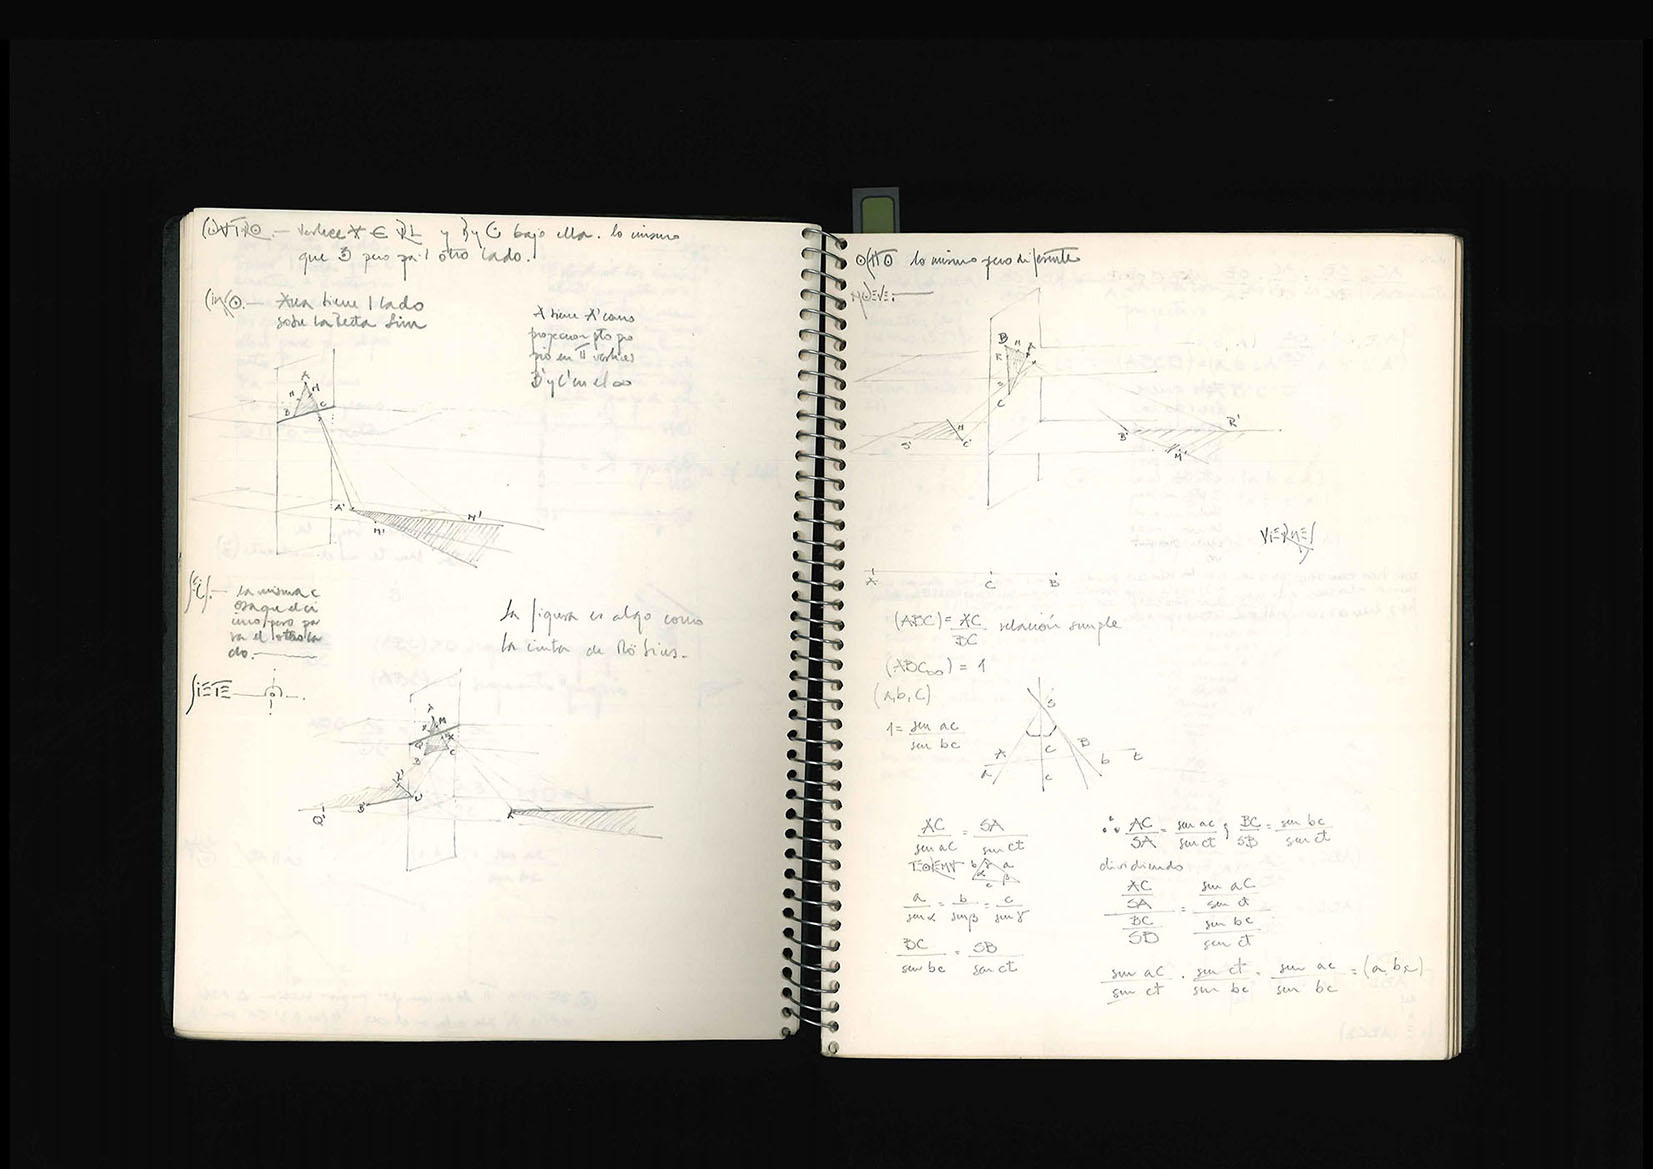 CUATRO.— vertice A ∈ RL y B y C bajo ella. lo mismo
que 3 pero pa'l otro lado.
CINCO.— Area tiene 1 lado
sobre la Recta Lim
A tiene A' como
proyeccion pto pro
pio en π vertices
B' y C' en el ∞
A
M
N
B
C
A'
M'
N'
SEIS.— La misma c
osa que el ci
nco pero pa
ra el otro la
do.
La figura es algo como
la cinta de Möbius.
SIETE
A
M
Q
B
C
R'
Q'
B'
C'
OCHO lo mismo pero diferente
NUEVE.—
B
M
A
R
S
C
N
S'
C'
B'
R'
M'
VIERNES
A C B
(ABC) = AC/BC relación simple
(ABC∞) = 1
(a,b,c)
1 = sen ac / sen bc
S
A
C
B
a
c
b
t
AC / sen ac = SA / sen ct
TEOREMA b γ a
α c β
a / sen α = b / sen β = c / sen γ
BC / sen bc = SB / sen ct
∴ AC/SA = sen ac / sen ct ; BC/SB = sen bc / sen ct
dividiendo
AC/SA / BC/SB = sen ac / sen ct / sen bc / sen ct
sen ac / sen ct · sen ct / sen bc = sen ac / sen bc = (a, b, c)